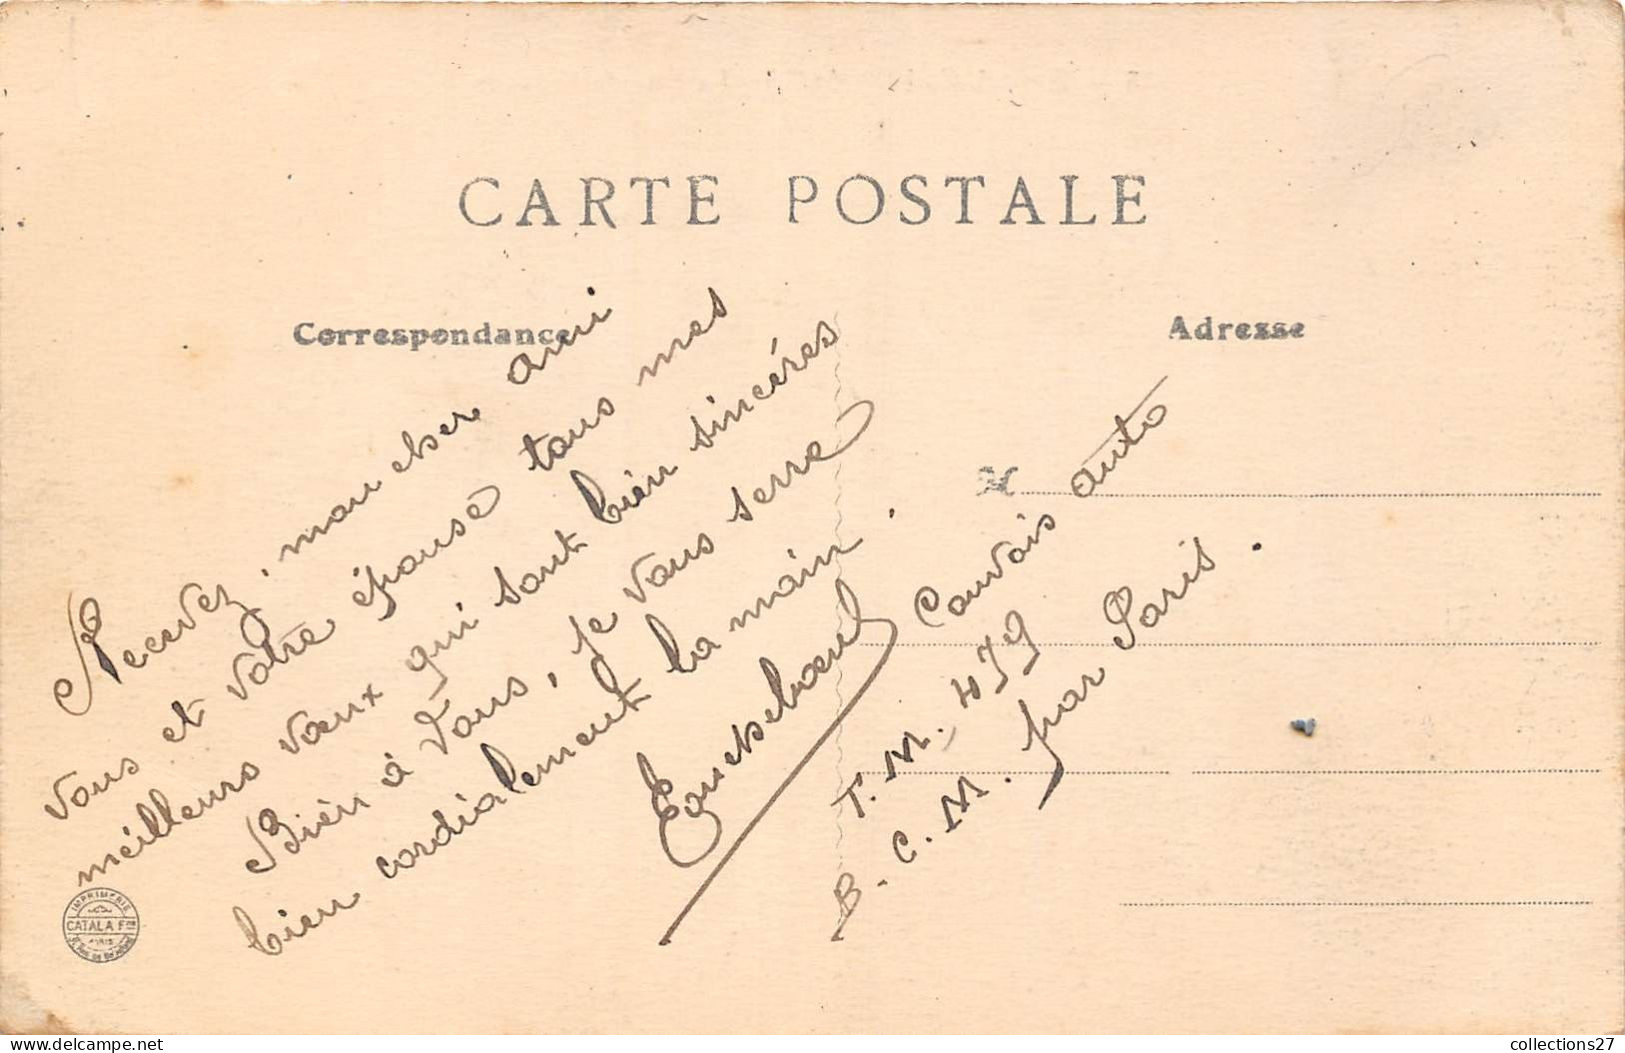 CARTE POSTALE
Correspondance
Adresse
Recevez, mon cher ami
vous et votre épouse tous mes
meilleurs vœux qui sont bien sincéres
Bien à vous, je vous serre
bien cordialement la main.
Convois auto
T. M. 479
B. C. M. par Paris.
IMPRIMERIE
CATALA Fres
PARIS
collections27